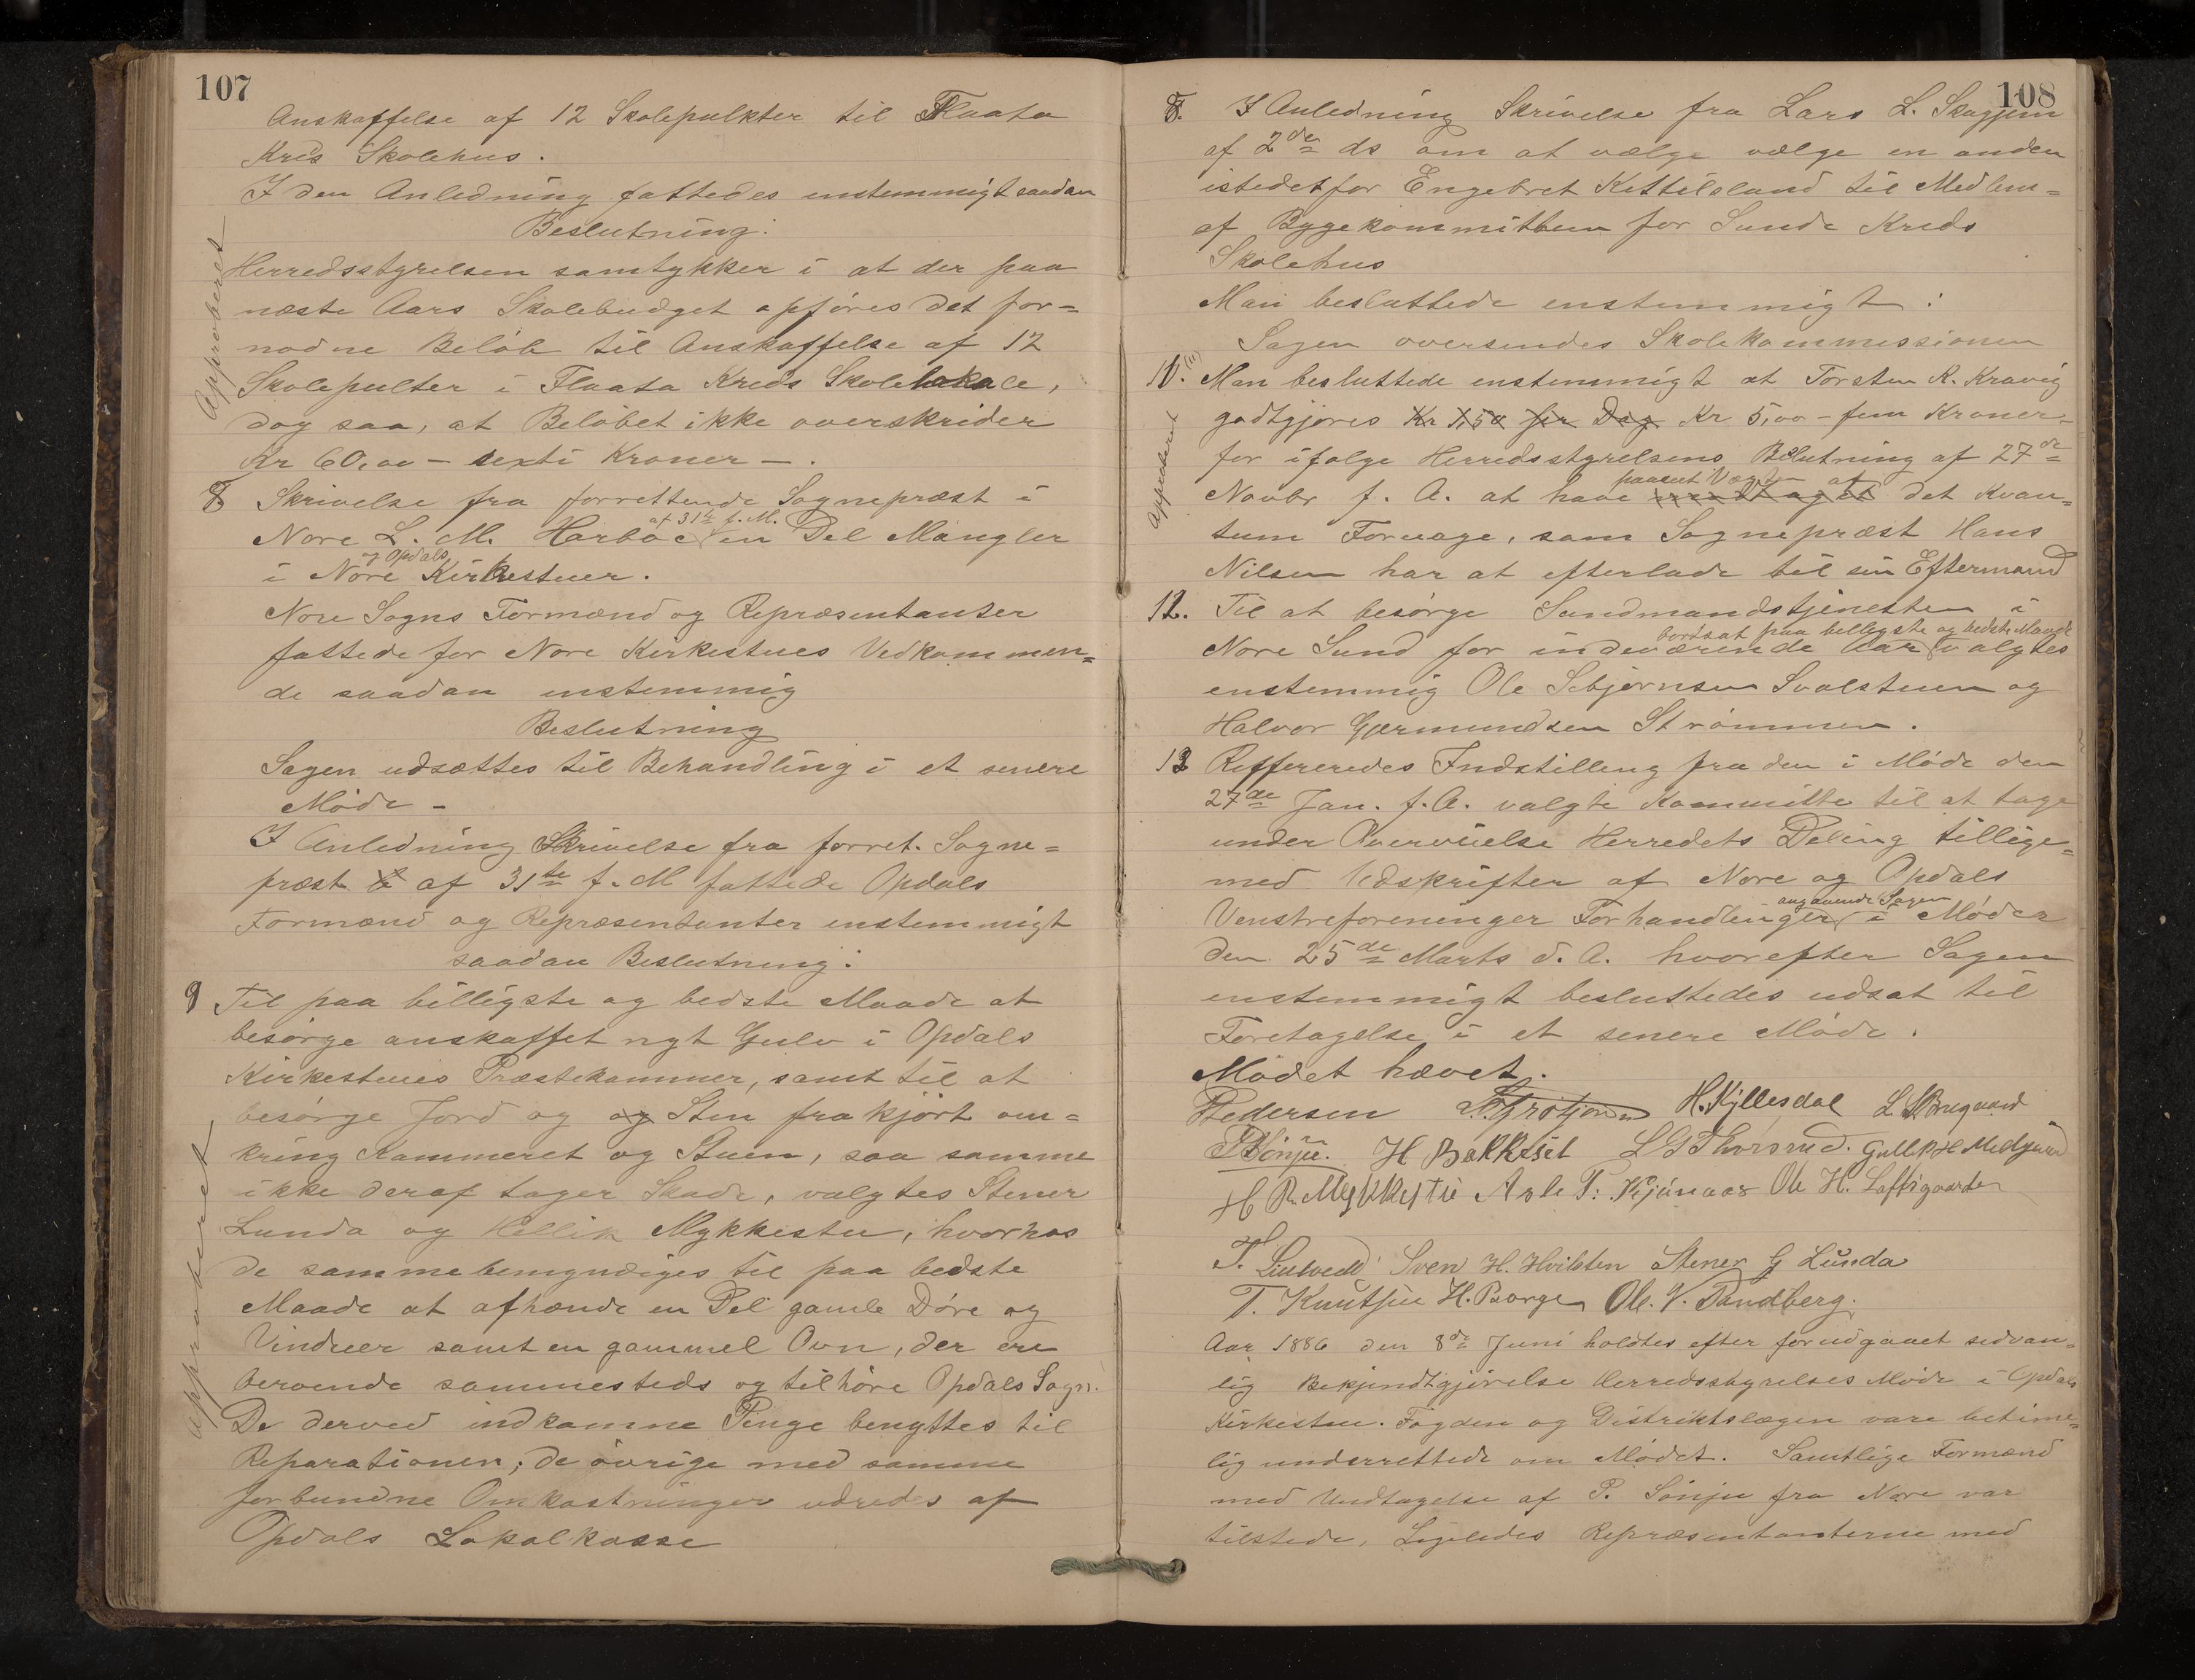 107
Anskaffelse af 12 Skolepulkter til Flaata
Kreds Skolehus.
I den Anledning fattedes enstemmigt saadan
Beslutning:
Approberet
Herredsstyrelsen samtykker i at der paa
næste Aars Skolebudget opføres det for=
nødne Beløb til Anskaffelse af 12
Skolepulter i Flaata Kreds Skolelokale,
dog saa, at Beløbet ikke overskrider
Kr 60,00 – sexti Kroner –.
8. Skrivelse fra forrettende Sognepræst i
Nore L. M. Harboe af 31te f. M. en Del Mangler
i Nore og Opdals Kirkestuer.
Nore Sogns Formænd og Repræsentanter
fattede for Nore Kirkestues Vedkommen=
de saadan enstemmig
Beslutning
Sagen udsættes til Behandling i et senere
Møde –
I Anledning Skrivelse fra forret. Sogne=
præst af 31te f. M fattede Opdals
Formænd og Repræsentanter enstemmigt
saadan Beslutning:
9 Til paa billigste og bedste Maade at
besørge anskaffet nyt Gulv i Opdals
Kirkestues Præstekammer, samt til at
besørge Jord og og Sten frakjørt om=
kring Kammeret og Stuen, saa samme
ikke deraf tager Skade, valgtes Stener
Lunda og Hellik Mykkestu, hvorhos
de samme bemyndiges til paa bedste
Maade at afhænde en Del gamle Døre og
Vinduer samt en gammel Ovn, der ere
beroende sammesteds og tilhøre Opdals Sogn.
De derved indkomne Penge benyttes til
Reparationen; de øvrige med samme
forbundne Omkostninger udredes af
Opdals Lokalkasse
Approberet
108
I Anledning Skrivelse fra Lars L. Skogjem
af 2den ds om at vælge vælge en anden
istedetfor Engebret Kittilsland til Medlem=
af Bygekommitteen for Sunde Kreds
Skolehus
Man besluttede enstemmigt:
Sagen oversendes Skolekommissionen
11. Man besluttede enstemmigt at Torsten K. Kravig
godtgjøres Kr 1,50 per Dag Kr 5,00 – fem Kroner –
for ifølge Herredsstyrelsens Beslutning af 27de
Novbr f. A. at have paaset Vægten af modtaget det Kvan=
tum Forvage, som Sognepræst Hans
Nilsen har at efterlade til sin Eftermand
12. Til at besørge Sundmandstjenesten i
Nore Sund for indeværende Aar bortsat paa billigste og bedste Maade valgtes
enstemmig Ole Sebjørnsen Svalstuen og
Halvor Gjermundsen Strømmen.
13 Reffereredes Indstilling fra den i Møde den
27de Jan. f. A. valgte Kommitte til at tage
under Overveielse Herredets Deling tillige=
med Udskrifter af Nore og Opdals
Venstreforeninger Forhandlinger angaaende Sagen i Møder
den 25de Marts d. A. hvorefter Sagen
enstemmigt besluttedes udsat til
Foretagelse i et senere Møde.
Mødet hævet.
Pedersen H. Kjllesdal
P Sönju. H Bakkeset L G Thorsrud.
H R. Mykkestu Asle T: Kjønaas Ole H. Loftsgaarden
T. Sven H. Hvilsten Stener G Lunda
T. Knutsen H. Borge Ole. V. Sandberg.
Aar 1886 den 8de Juni holdtes efter forudgaaet sedvan=
lig Bekjendtgjørelse Herredsstyrelses Møde i Opdals
Kirkestue. Fogden og Distriktslægen vare betime=
lig underrettede om Mødet. Samtlige Formænd
med Undtagelse af P. Sönju fra Nore var
tilstede, Ligeledes Repræsentanterne med